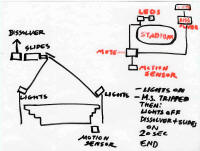 LEDS
DISSOLVER
SLIDES
STADIUM
MUTE
MOTION
SENSOR
LIGHTS
LIGHTS
MOTION
SENSOR
- LIGHTS ON
- M.S. TRIPPED
THEN:
LIGHTS OFF
DISSOLVER + SLIDES
ON
20 SEC
END